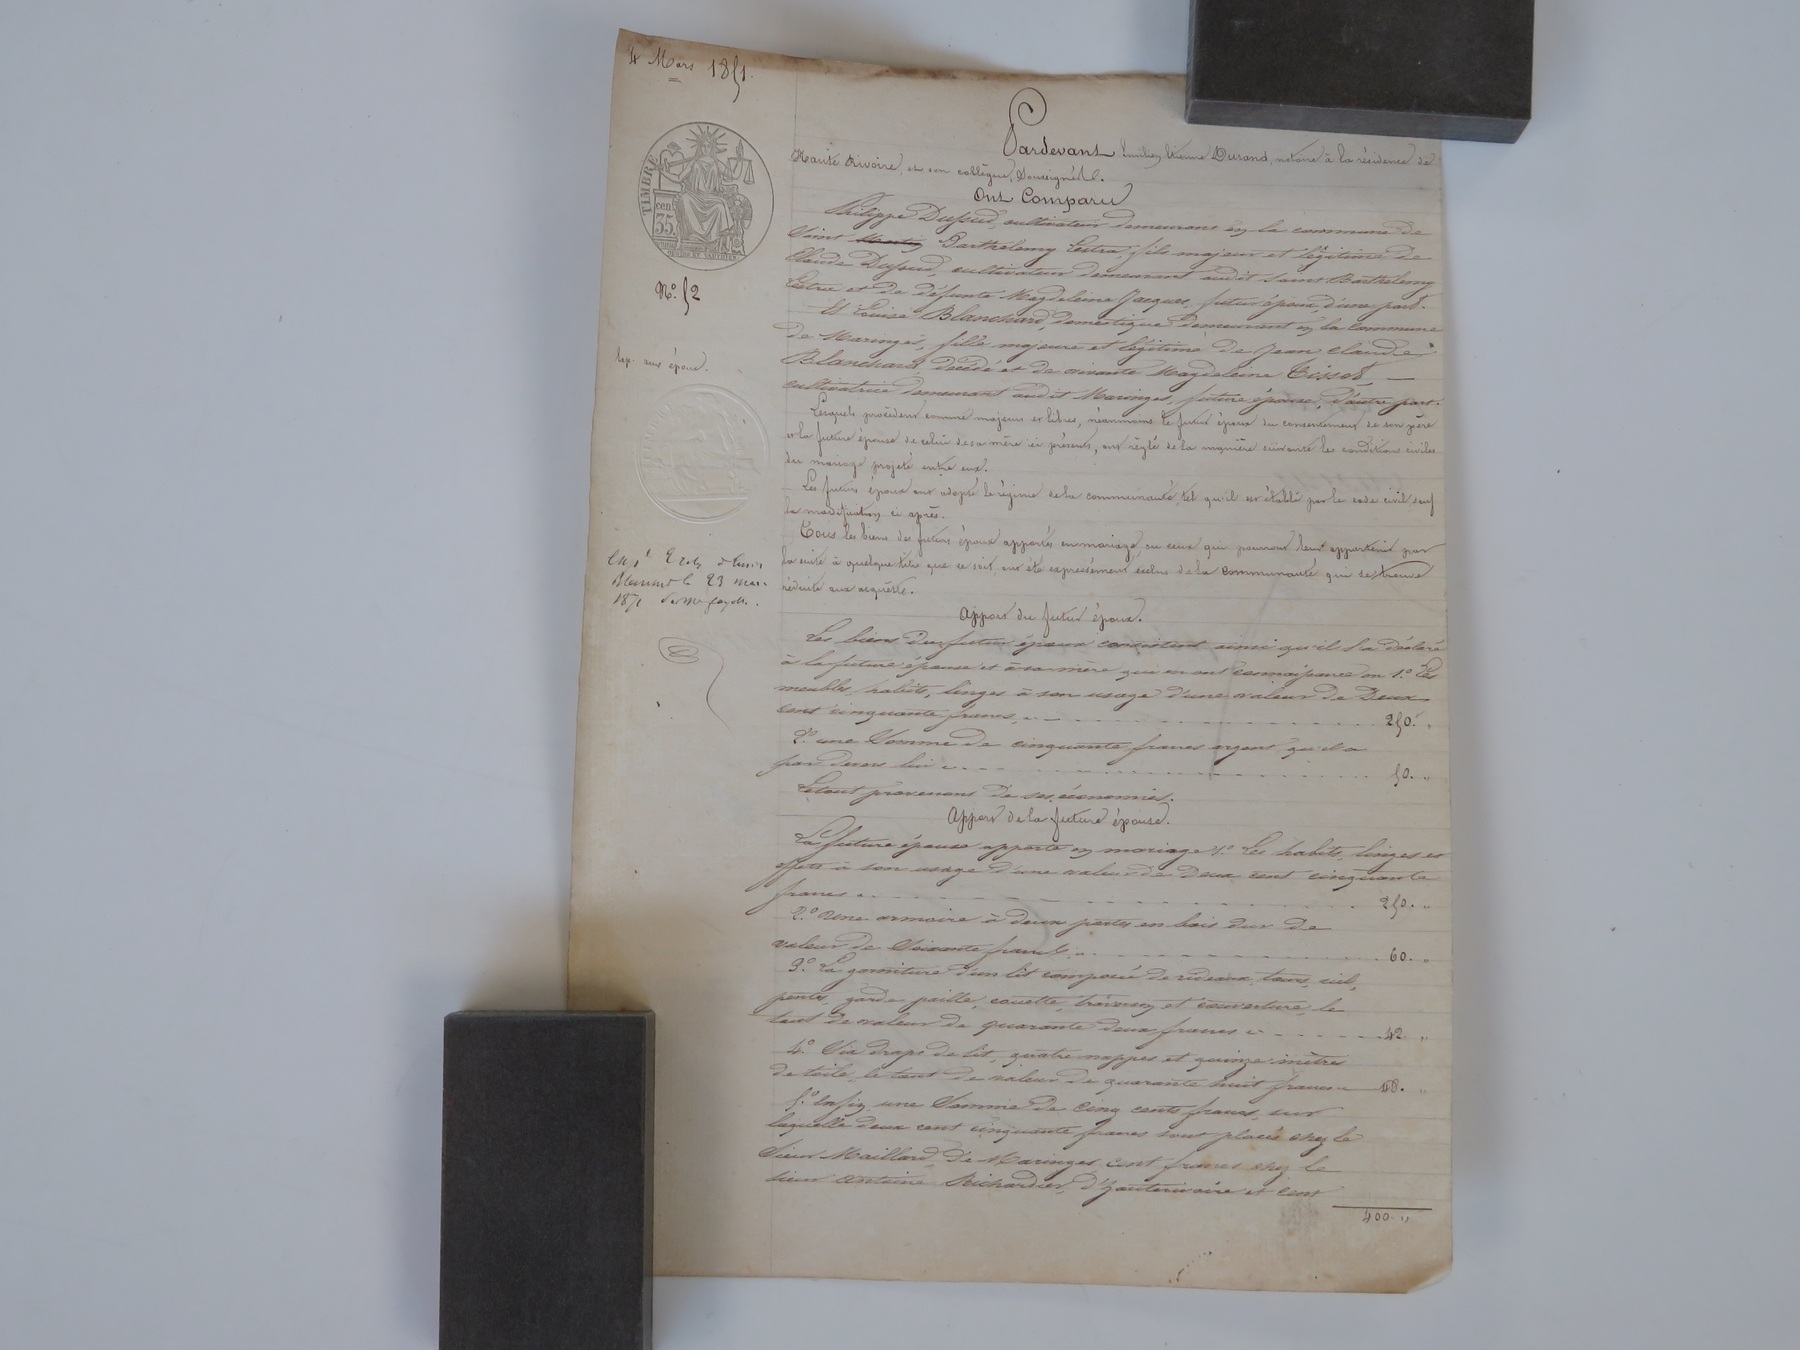 4 Mars 1851.
TIMBRE
cent
35.
N.° 52
Exp. aux époux.
Pardevant Emilien Etienne Durand, notaire à la résidence de
Haute Rivoire, et son collègue, Soussignés.
Ont Comparu
Philippe Dussud, cultivateur demeurant en la commune de
Saint Martin Barthélemy Lestra, fils majeur et légitime de
Claude Dussud, cultivateur demeurant audit Saint Barthélemy
Lestra et de défunte Magdeleine Jacques, futur époux, d'une part.
Et Louise Blanchard, domestique demeurant en la commune
de Maringes, fille majeure et légitime de Jean Claude
Blanchard décédé et de vivante Magdeleine Tissot, —
cultivatrice demeurant audit Maringes, future épouse, d'autre part.
Lesquels procédant comme majeurs et libres, néanmoins le futur époux du consentement de son père
et la future épouse de celui de sa mère ici présents, ont réglé de la manière suivante les conditions civiles
du mariage projeté entre eux.
Les futurs époux ont adopté le régime de la communauté, tel qu'il est établi par le code civil, sauf
la modification ci après.
Tous les biens des futurs époux apportés en mariage, ou ceux qui pourront leur appartenir par
la suite à quelque titre que ce soit, ont été expressément exclus de la communauté qui se trouve
réduite aux acquêts.
Apport du futur époux.
Les biens du futur époux consistent ainsi qu'il l'a déclaré
à la future épouse et à sa mère qui en ont connaissance en 1.° Les
meubles, habits, linges à son usage d'une valeur de Deux
cent cinquante francs 250. "
2.° une Somme de cinquante francs argent qu'il a
par devers lui 50. "
Le tout provenant de ses économies.
Apport de la future épouse.
La future épouse apporte en mariage 1.° Les habits, linges et
effets à son usage d'une valeur de Deux cent cinquante
francs 250. "
2.° Une armoire à deux portes en bois dur de
valeur de Soixante francs 60. "
3.° La garniture d'un lit composée de rideaux, tour, ciel,
pente, garde paille, couette, traversin et couverture, le
tout de valeur de quarante deux francs 42 "
4.° Six draps de lit, quatre nappes et quinze mètres
de toile, le tout de valeur de quarante huit francs 48. "
5.° Enfin une Somme de Cinq cents francs, sur
laquelle deux cent cinquante francs sont placés chez le
Sieur Maillard, de Maringes, cent francs chez le
sieur Antoine Richardier, d'hauterivoire et cent
400. "